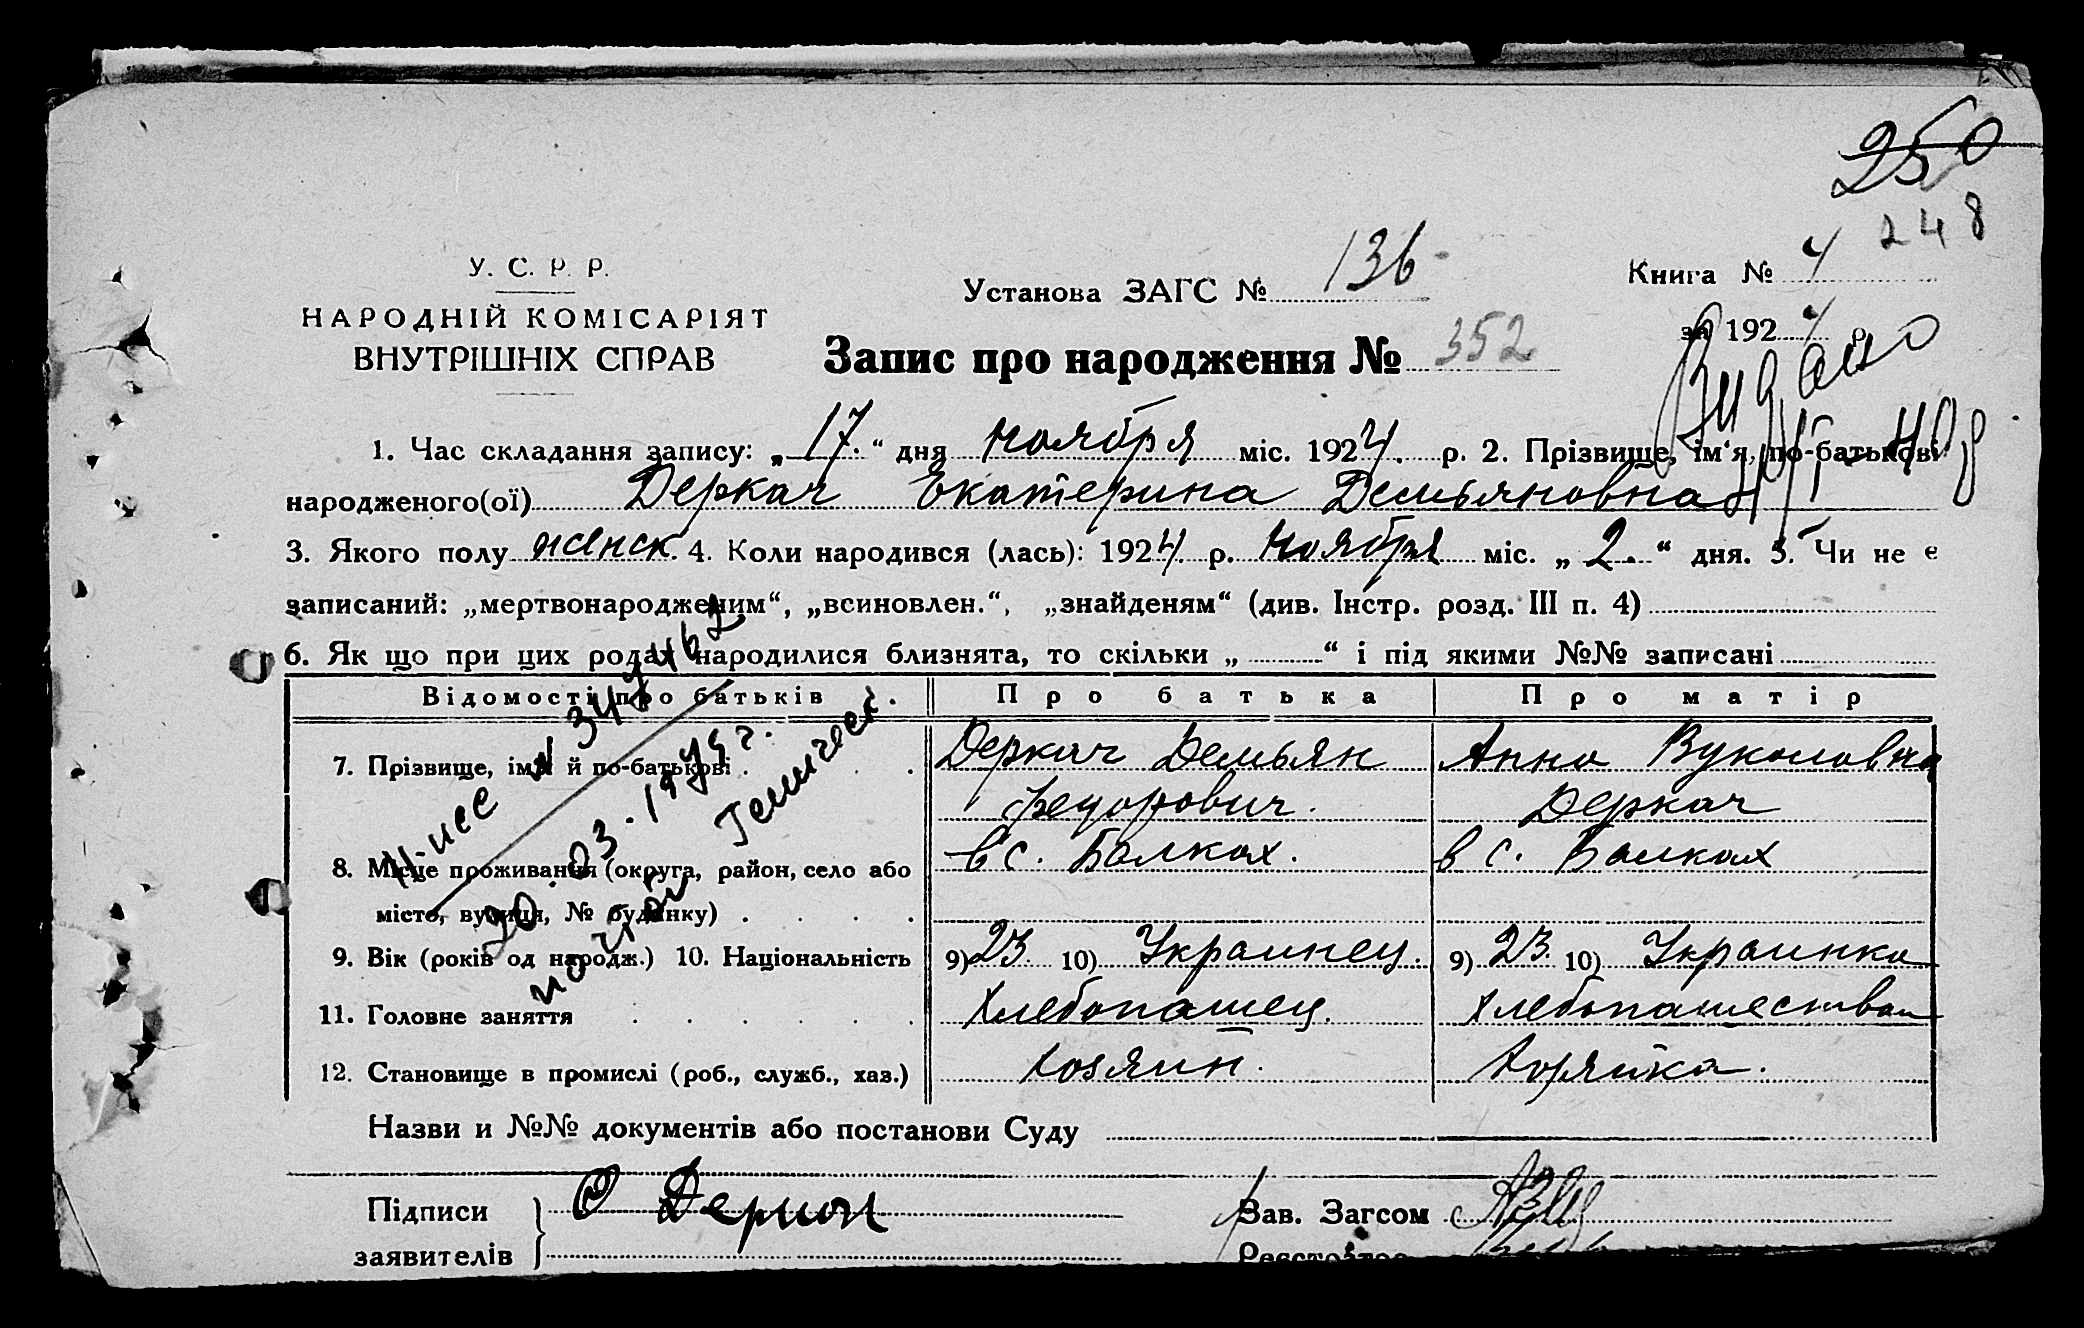 250
248
У. С. Р. Р.
НАРОДНІЙ КОМІСАРІЯТ
ВНУТРІШНІХ СПРАВ
Установа ЗАГС № 136
Книга № 4
за 1924 р.
Запис про народження № 352
Видано
1. Час складання запису: „17.“ дня ноября міс. 1924. р. 2. Прізвище, ім'я, по-батькові
народженого(ої) Деркач Екатерина Демьяновна
3. Якого полу женск. 4. Коли народився (лась): 1924 р. ноября міс. „2.“ дня. 5. Чи не є
записаний: „мертвонародженим“, „всиновлен.“, „знайденям“ (див. Інстр. розд. III п. 4)
6. Як що при цих родах народилися близнята, то скільки „ “ і під якими №№ записані
Відомості про батьків.
Про батька
Про матір
7. Прізвище, ім'я й по-батькові
Деркач Демьян
Федорович.
Анна Вуколовна
Деркач
8. Місце проживання (округа, район, село або
місто, вулиця, № будинку)
в с. Балках.
в с. Балках
9. Вік (років од народж.) 10. Національність
9) 23 10) Украинец.
9) 23. 10) Украинка
11. Головне заняття
Хлебопашец.
12. Становище в промислі (роб., служб., хаз.)
хозяин.
Назви и №№ документів або постанови Суду
Підписи
заявителів
Зав. Загсом